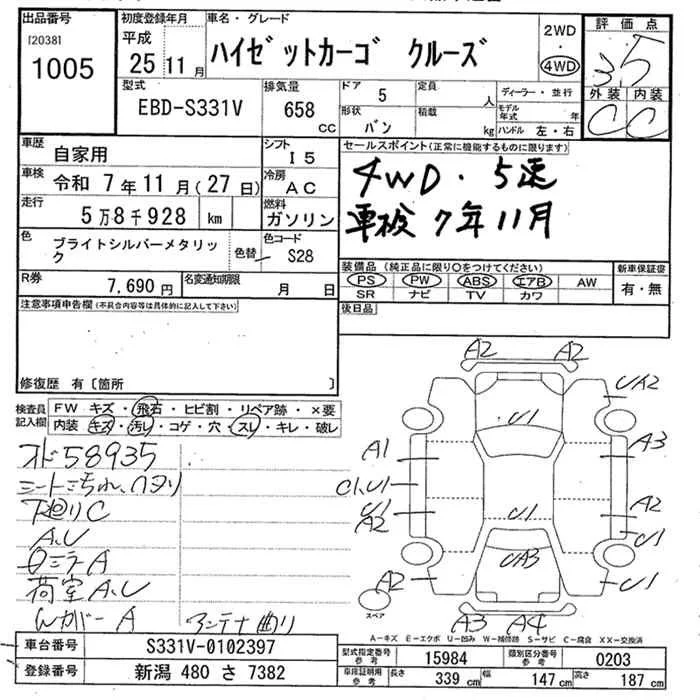 出品番号
[20381
1005
初度登録年月
平成
25 11 月
車名・グレード
ハイゼットカーゴ クルーズ
2WD
・
4WD
評価点
3.5
外装 内装
C C
型式
EBD-S331V
排気量
658
CC
ドア 5
形状 バン
定員 人
積載 kg
ディーラー・並行
モデル年式 年
ハンドル 左・右
車歴
自家用
シフト
I5
車検
令和 7年11月(27日)
冷房
AC
走行
5万8千928 km
燃料
ガソリン
色
ブライトシルバーメタリック
色替
色コード
S28
R券
7,690円
名変通知期限
月 日
セールスポイント(正常に機能するものに限ります)
4WD・5速
車検7年11月
装備品(純正品に限り○をつけてください)
PS PW ABS エアB AW
SR ナビ TV カワ
新車保証書
有・無
後日品
注意事項申告欄(不具合内容等は具体的に記入して下さい)
修復歴 有〔箇所 〕
検査員記入欄
FW キズ・飛石・ヒビ割・リペア跡・×要
内装 キズ・汚レ・コゲ・穴・スレ・キレ・破レ
オド58935
シートよごれ、ヘタリ
下廻りC
A、U
荷室A、U
A アンテナ曲り
A2 A2
UA2
U1
A1
A3
C1、U1
U1
A2
U1
A2
U1
UA3
A2
U1
スペア
A3 A4
A-キズ E-エクボ U-凹み W-補修跡 S-サビ C-腐食 XX-交換済
車台番号
S331V-0102397
登録番号
新潟 480 さ 7382
型式指定番号
参考
15984
類別区分番号
参考
0203
車庫証明用
参考
長さ
339 cm
幅
147 cm
高さ
187 cm